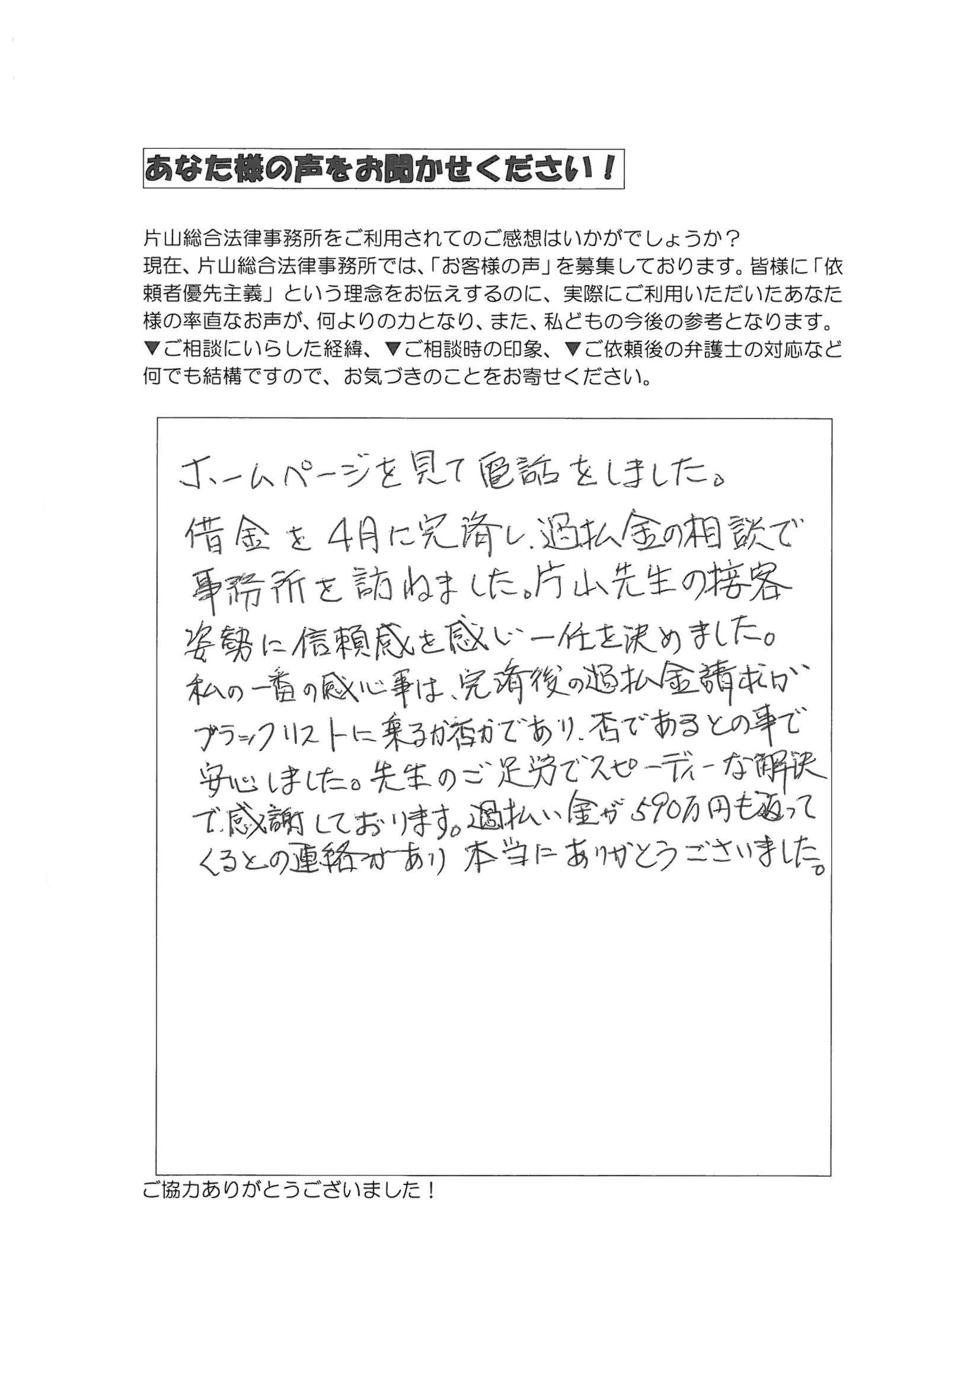 あなた様の声をお聞かせください！
片山総合法律事務所をご利用されてのご感想はいかがでしょうか？
現在、片山総合法律事務所では、「お客様の声」を募集しております。皆様に「依
頼者優先主義」という理念をお伝えするのに、実際にご利用いただいたあなた
様の率直なお声が、何よりの力となり、また、私どもの今後の参考となります。
▼ご相談にいらした経緯、▼ご相談時の印象、▼ご依頼後の弁護士の対応など
何でも結構ですので、お気づきのことをお寄せください。
ホームページを見て電話をしました。
借金を4月に完済し、過払金の相談で
事務所を訪ねました。片山先生の接客
姿勢に信頼感を感じ一任を決めました。
私の一番の感心事は、完済後の過払金請求が
ブラックリストに乗るか否かであり、否であるとの事で
安心しました。先生のご足労でスピーディーな解決
で、感謝しております。過払い金が590万円も返って
くるとの連絡があり 本当にありがとうございました。
ご協力ありがとうございました！